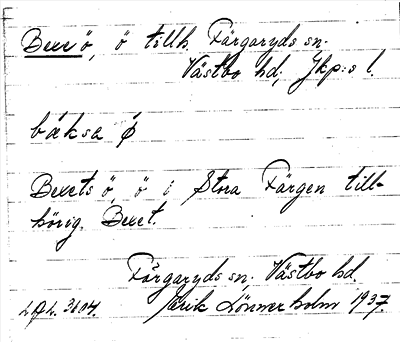 Bexe ö, ö tillh. Färgaryds sn.
Västbo hd, Jkp:s l.
bæksa ǿ
Bexets ö, ö i Stora Färgen till-
hörig Bexet.
Färgaryds sn. Västbo hd.
Erik Lönnerholm 1937.